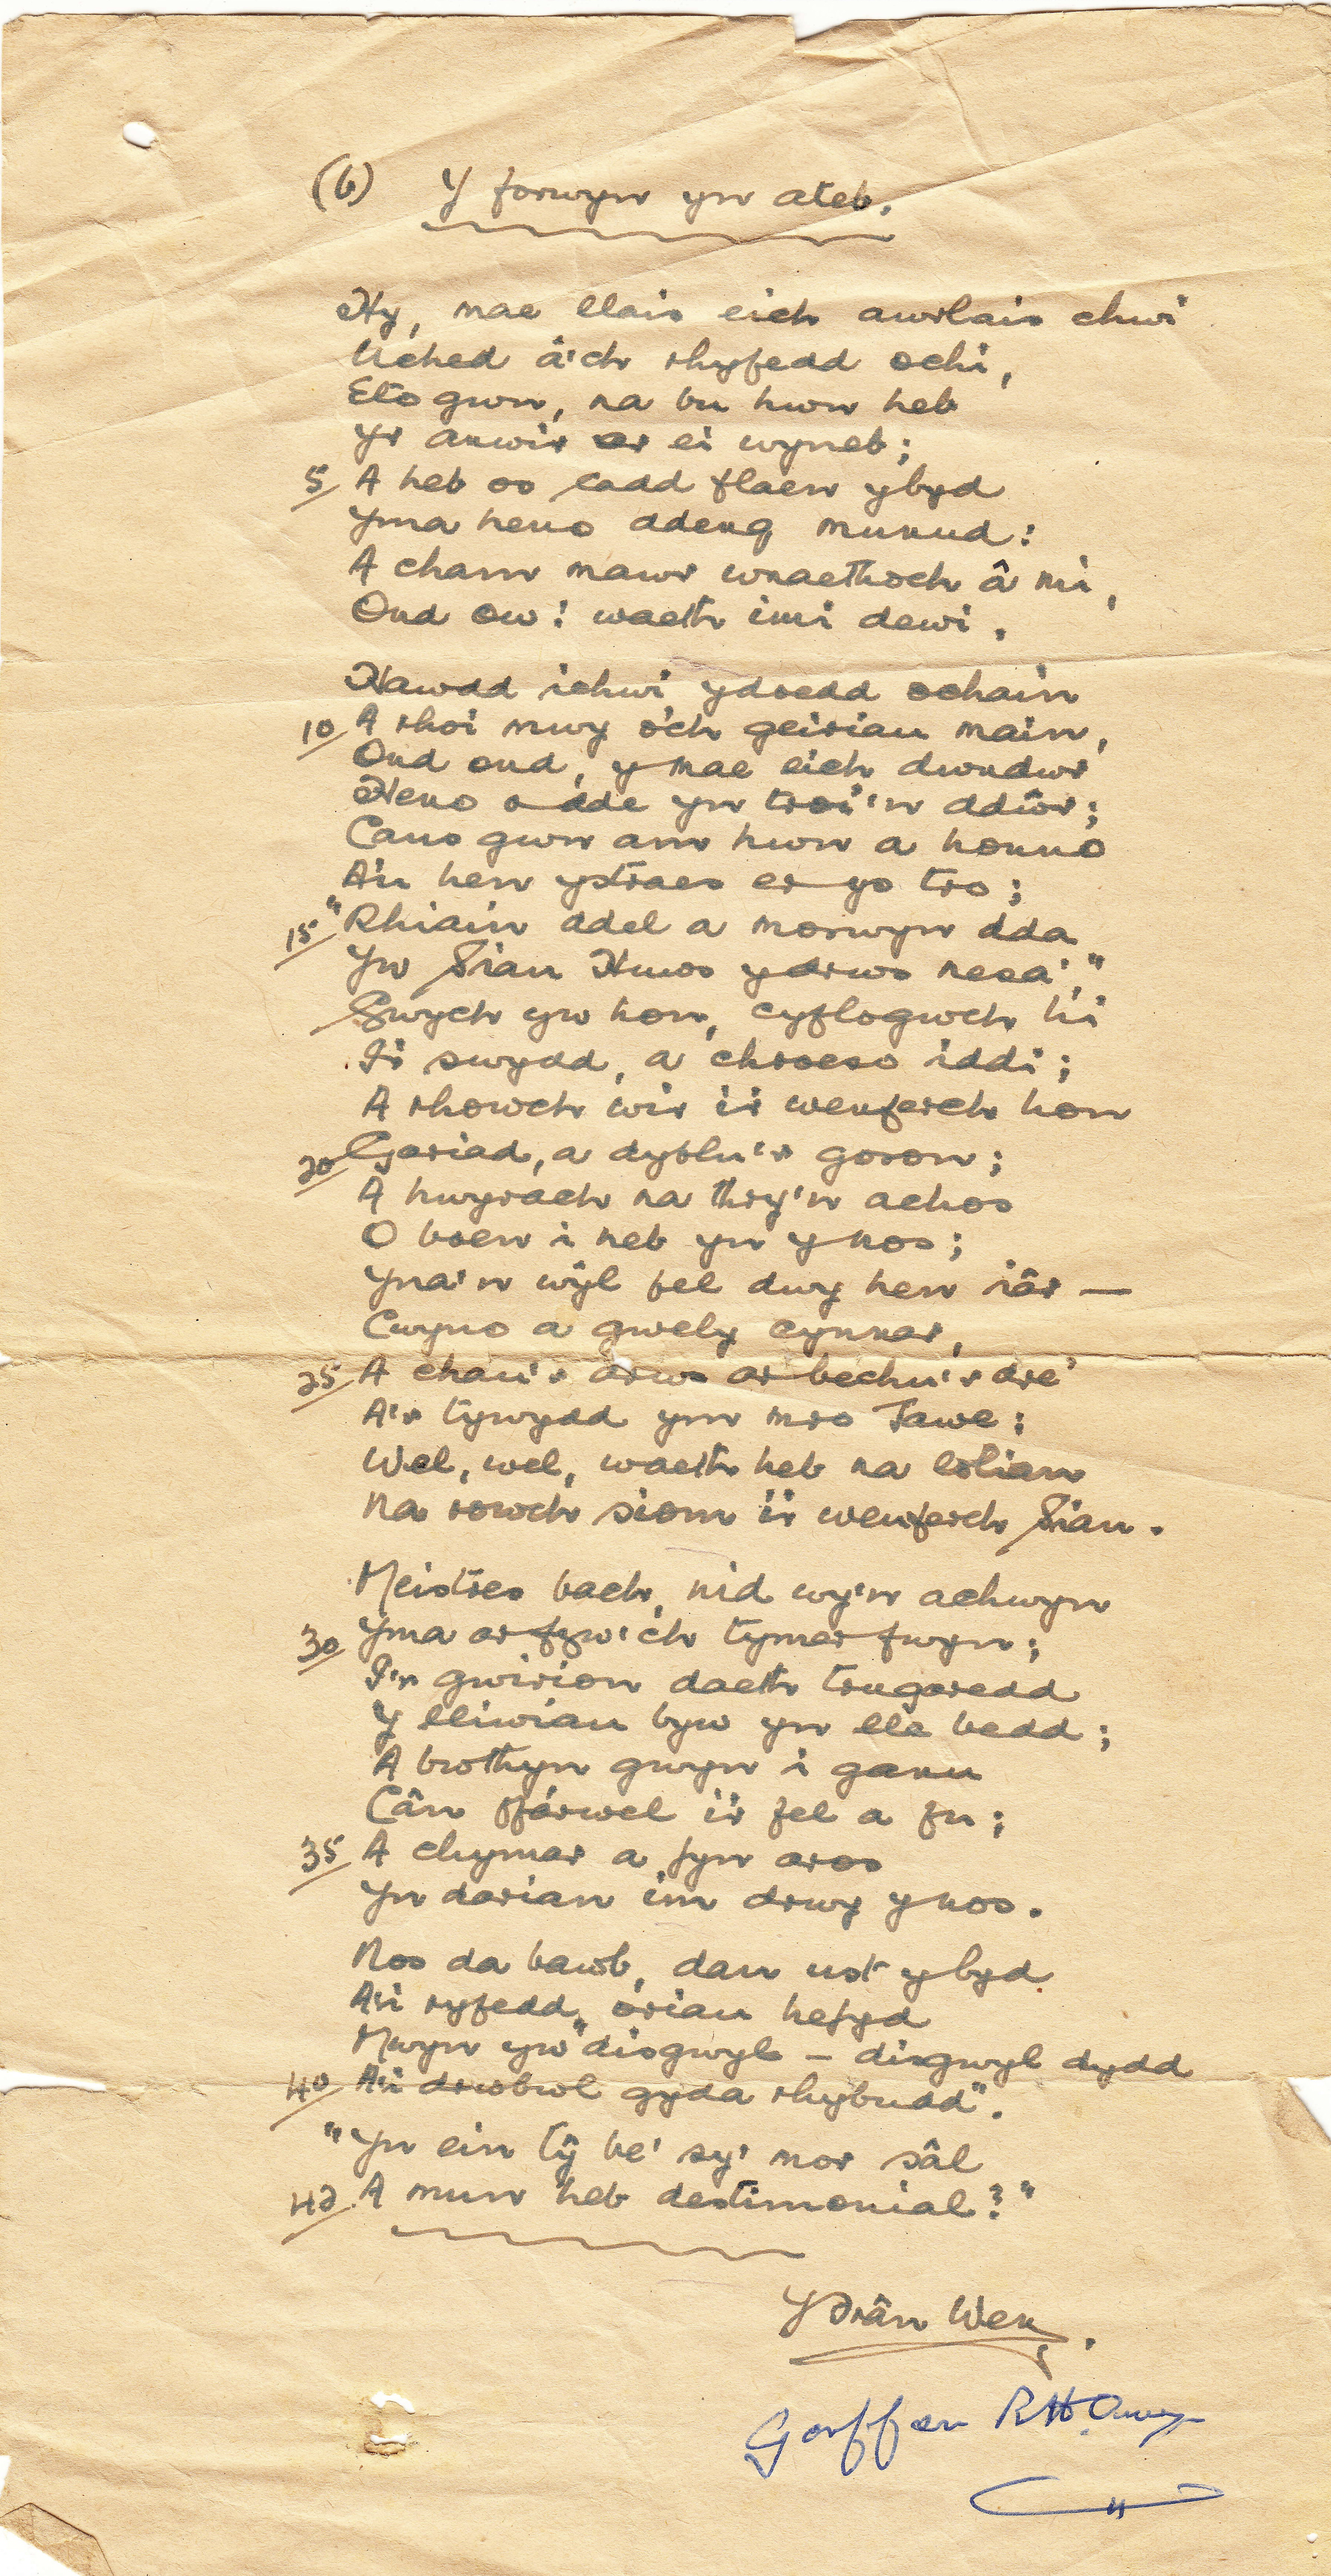 (b) Y forwyn yn ateb.
Hy, mae llais eich awrlais chwi
Uched â'ch rhyfedd ochi,
Eto gwn, na bu hwn heb
Yr anwir ar ei wyneb;
5 A heb os cadd flaen y byd
Yma heno ddeng munud:
A cham mawr wnaethoch â mi,
Ond ow! waeth imi dewi.
Hawdd ichwi ydoedd ochain
10 A rhoi mwy o'ch geiriau main,
Ond ond, y mae eich dwndwr
Heno o dde yn troi'n ddŵr;
Cans gwn am hwn a honno
A'u hen ystraes er ys tro;
15 "Rhiain ddel a morwyn dda
Yw Sian Huws y drws nesa',"
Gwych yw hon, cyflogwch hi
I'r swydd, a chroeso iddi;
A rhowch wir i'r wenferch hon
20 Gariad, a dyblu'r goron;
A hwyrach na thry'n achos
O boen i neb yn y nos;
Yna'n wŷl fel dwy hen iâr —
Cwyno a gwely cynnar,
25 A chau'r drws ar bechu'r dre'
A'r tywydd ym mro Tawe:
Wel, wel, waeth heb na lolian
Na rowch siom i'r wenferch Sian.
Meistres bach, nid wy'n achwyn
30 Yma ar fyw i'ch tymer fwyn;
I'r gwirion daeth trugaredd
Y lliwiau byw yn lle bedd;
A brothyn gwyn i ganu
Cân ffárwel i'r fel a fu;
35 A chymar a fyn aros
Yn darian im drwy y nos.
Nos da bawb, dan ust y byd
A'i ryfedd oriau hefyd
Mwyn yw "disgwyl – disgwyl dydd
40 A'i drwbwl gyda rhybudd".
"Yn ein tŷ be' sy' mor sâl
42 A mun heb destimonial?"
Y Frân Wen.
Gorffen R H Owen